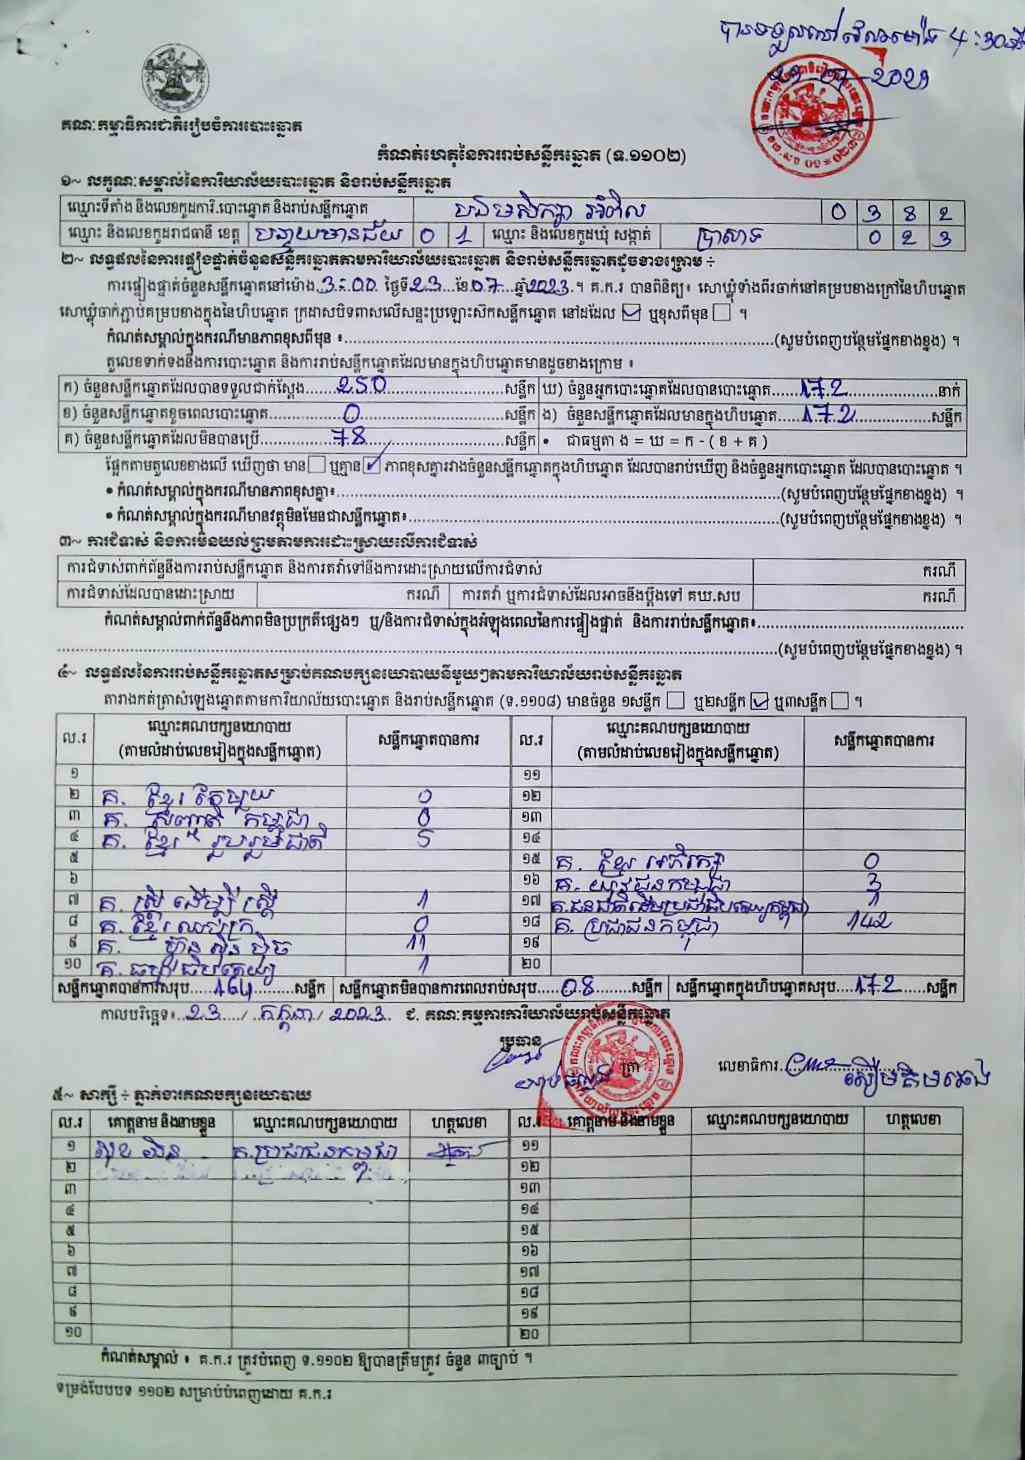 បានទទួលនៅវេលាម៉ោង 4:30នាទី
23-07-2023
គណៈកម្មាធិការជាតិរៀបចំការបោះឆ្នោត
កំណត់ហេតុនៃការរាប់សន្លឹកឆ្នោត (ទ.១១០២)
១~ លក្ខណៈសម្គាល់នៃការិយាល័យបោះឆ្នោត និងរាប់សន្លឹកឆ្នោត
ឈ្មោះទីតាំង និងលេខកូដការិ.បោះឆ្នោត និងរាប់សន្លឹកឆ្នោត បឋមសិក្សា អំពិល 0 3 8 2
ឈ្មោះ និងលេខកូដរាជធានី ខេត្ត បន្ទាយមានជ័យ 0 1 ឈ្មោះ និងលេខកូដឃុំ សង្កាត់ ប្រាសាទ 0 2 3
២~ លទ្ធផលនៃការផ្ទៀងផ្ទាត់ចំនួនសន្លឹកឆ្នោតតាមការិយាល័យបោះឆ្នោត និងរាប់សន្លឹកឆ្នោតដូចខាងក្រោម ÷
ការផ្ទៀងផ្ទាត់ចំនួនសន្លឹកឆ្នោតនៅម៉ោង 3:00 ថ្ងៃទី 23 ខែ 07 ឆ្នាំ 2023 ។ គ.ក.រ បានពិនិត្យ៖ សោឃ្លុំទាំងពីរចាក់នៅគម្របខាងក្រៅនៃហិបឆ្នោត
សោឃ្លុំចាក់ភ្ជាប់គម្របខាងក្នុងនៃហិបឆ្នោត ក្រដាសបិទពាសលើសន្ទះប្រឡោះស៊កសន្លឹកឆ្នោត នៅដដែល ☑ ឬខុសពីមុន ☐ ។
កំណត់សម្គាល់ក្នុងករណីមានភាពខុសពីមុន ៖..........(សូមបំពេញបន្ថែមផ្នែកខាងខ្នង) ។
តួលេខទាក់ទងនឹងការបោះឆ្នោត និងការរាប់សន្លឹកឆ្នោតដែលមានក្នុងហិបឆ្នោតមានដូចខាងក្រោម ៖
ក) ចំនួនសន្លឹកឆ្នោតដែលបានទទួលជាក់ស្តែង..... 250 .....សន្លឹក ឃ) ចំនួនអ្នកបោះឆ្នោតដែលបានបោះឆ្នោត..... 172 .....នាក់
ខ) ចំនួនសន្លឹកឆ្នោតខូចពេលបោះឆ្នោត..... 0 .....សន្លឹក ង) ចំនួនសន្លឹកឆ្នោតដែលមានក្នុងហិបឆ្នោត..... 172 .....សន្លឹក
គ) ចំនួនសន្លឹកឆ្នោតដែលមិនបានប្រើ..... 78 .....សន្លឹក • ជាធម្មតា ង = ឃ = ក - ( ខ + គ )
ផ្អែកតាមតួលេខខាងលើ ឃើញថា មាន ☐ ឬគ្មាន ☑ ភាពខុសគ្នារវាងចំនួនសន្លឹកឆ្នោតក្នុងហិបឆ្នោត ដែលបានរាប់ឃើញ និងចំនួនអ្នកបោះឆ្នោត ដែលបានបោះឆ្នោត ។
• កំណត់សម្គាល់ក្នុងករណីមានភាពខុសគ្នា៖..........(សូមបំពេញបន្ថែមផ្នែកខាងខ្នង) ។
• កំណត់សម្គាល់ក្នុងករណីមានវត្ថុមិនមែនជាសន្លឹកឆ្នោត៖..........(សូមបំពេញបន្ថែមផ្នែកខាងខ្នង) ។
៣~ ការជំទាស់ និងការមិនយល់ព្រមតាមការដោះស្រាយលើការជំទាស់
ការជំទាស់ពាក់ព័ន្ធនឹងការរាប់សន្លឹកឆ្នោត និងការតវ៉ាទៅនឹងការដោះស្រាយលើការជំទាស់ ករណី
ការជំទាស់ដែលបានដោះស្រាយ ករណី ការតវ៉ា ឬការជំទាស់ដែលអាចនឹងប្តឹងទៅ គឃ.សប ករណី
កំណត់សម្គាល់ពាក់ព័ន្ធនឹងភាពមិនប្រក្រតីផ្សេងៗ ឬ/និងការជំទាស់ក្នុងអំឡុងពេលនៃការផ្ទៀងផ្ទាត់ និងការរាប់សន្លឹកឆ្នោត៖..........
..........(សូមបំពេញបន្ថែមផ្នែកខាងខ្នង) ។
៤~ លទ្ធផលនៃការរាប់សន្លឹកឆ្នោតសម្រាប់គណបក្សនយោបាយនីមួយៗតាមការិយាល័យរាប់សន្លឹកឆ្នោត
តារាងកត់ត្រាសំឡេងឆ្នោតតាមការិយាល័យបោះឆ្នោត និងរាប់សន្លឹកឆ្នោត (ទ.១១០៨) មានចំនួន ១សន្លឹក ☐ ឬ២សន្លឹក ☑ ឬ៣សន្លឹក ☐ ។
ល.រ ឈ្មោះគណបក្សនយោបាយ (តាមលំដាប់លេខរៀងក្នុងសន្លឹកឆ្នោត) សន្លឹកឆ្នោតបានការ ល.រ ឈ្មោះគណបក្សនយោបាយ (តាមលំដាប់លេខរៀងក្នុងសន្លឹកឆ្នោត) សន្លឹកឆ្នោតបានការ
១ ១១
២ គ. ខ្មែរ តែមួយ 0 ១២
៣ គ. សញ្ជាតិ កម្ពុជា 0 ១៣
៤ គ. ខ្មែរ រួបរួមជាតិ 5 ១៤
៥ ១៥ គ. ខ្មែរ អភិរក្ស 0
៦ ១៦ គ. យុវជនកម្ពុជា 3
៧ គ. ស្រ្តី ដើម្បី ស្រ្តី 1 ១៧ គ.ជនជាតិដើមប្រជាធិបតេយ្យកម្ពុជា 1
៨ គ. ខ្មែរឈប់ក្រ 0 ១៨ គ. ប្រជាជនកម្ពុជា 142
៩ គ. ហ៊្វុនស៊ិនប៉ិច 11 ១៩
១០ គ. ធម្មាធិបតេយ្យ 1 ២០
សន្លឹកឆ្នោតបានការសរុប..... 164 .....សន្លឹក សន្លឹកឆ្នោតមិនបានការពេលរាប់សរុប..... 08 .....សន្លឹក សន្លឹកឆ្នោតក្នុងហិបឆ្នោតសរុប..... 172 .....សន្លឹក
កាលបរិច្ឆេទ៖ 23 / កក្កដា / 2023 ជ. គណៈកម្មការការិយាល័យរាប់សន្លឹកឆ្នោត
ប្រធាន
ត្រា លេខាធិការ
៥~ សាក្សី ÷ ភ្នាក់ងារគណបក្សនយោបាយ
ល.រ គោត្តនាម និងនាមខ្លួន ឈ្មោះគណបក្សនយោបាយ ហត្ថលេខា ល.រ គោត្តនាម និងនាមខ្លួន ឈ្មោះគណបក្សនយោបាយ ហត្ថលេខា
១ គ.ប្រជាជនកម្ពុជា ១១
២ ១២
៣ ១៣
៤ ១៤
៥ ១៥
៦ ១៦
៧ ១៧
៨ ១៨
៩ ១៩
១០ ២០
កំណត់សម្គាល់ ៖ គ.ក.រ ត្រូវបំពេញ ទ.១១០២ ឱ្យបានត្រឹមត្រូវ ចំនួន ៣ច្បាប់ ។
ទម្រង់បែបបទ ១១០២ សម្រាប់បំពេញដោយ គ.ក.រ